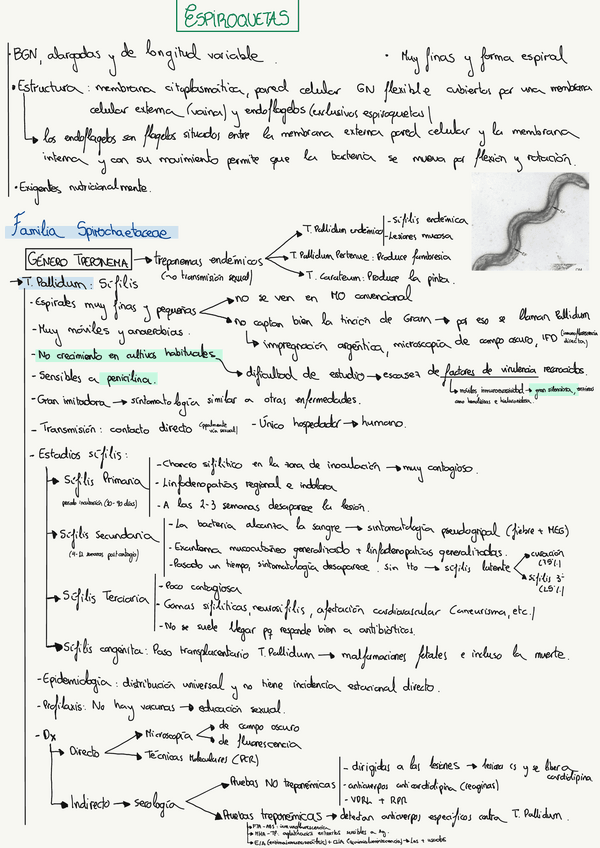 ESPIROQUETAS
- BGN, alargadas y de longitud variable.
• Muy finas y forma espiral
• Estructura: membrana citoplasmática, pared celular GN flexible cubiertos por una membrana
celular externa (vaina) y endoflagelos (exclusivos espiroquetas)
los endoflagelos son flagelos situados entre la membrana externa pared celular y la membrana
interna y con su movimiento permite que la bacteria se mueva por flexión y rotación.
• Exigentes nutricionalmente.
Familia Spirochaetaceae
GÉNERO TREPONEMA → treponemas endémicos
(→ transmisión sexual)
T. Pallidum endémico
- Sífilis endémica
- Lesiones mucosa
T. Pallidum Pertenue: Produce frambesia
T. Carateum: Produce la pinta.
→ T. Pallidum: Sífilis
- Espirales muy finas y pequeñas
no se ven en MO convencional
no captan bien la tinción de Gram → por eso se llaman Pallidum
impregnación argéntica, microscopía de campo oscuro, IFD (inmunofluorescencia directa)
- Muy móviles y anaerobias.
- No crecimiento en cultivos habituales
dificultad de estudio → escasez de factores de virulencia reconocidos.
- Sensibles a penicilina.
- Gran imitadora → sintomatología similar a otras enfermedades.
- Transmisión: contacto directo
- Único hospedador → humano.
- Estadíos sífilis:
Sífilis Primaria
periodo incubación (10-90 días)
- Chancro sifilítico en la zona de inoculación → muy contagioso.
- Linfadenopatías regional e indolora
- A las 2-3 semanas desaparece la lesión.
Sífilis Secundaria
(4-12 semanas post contagio)
- La bacteria alcanza la sangre → sintomatología pseudogripal (fiebre + MEG)
- Exantema mucocutáneo generalizado + linfadenopatías generalizadas.
- Pasado un tiempo, sintomatología desaparece. sin tto → sífilis latente
curación
sífilis 3ª
Sífilis Terciaria
- Poco contagiosa
- Gomas sifilíticas, neurosífilis, afectación cardiovascular (aneurisma, etc.)
- No se suele llegar pq responde bien a antibióticos.
Sífilis congénita: Paso transplacentario T. Pallidum → malformaciones fetales e incluso la muerte.
- Epidemiología: distribución universal y no tiene incidencia estacional directo.
- Profilaxis: No hay vacunas → educación sexual.
- Dx
Directo
Microscopía
de campo oscuro
de fluorescencia
Técnicas Moleculares (PCR)
Indirecto → serología
Pruebas NO treponémicas
- dirigidas a las lesiones → lesiona cs y se libera cardiolipina
- anticuerpos anticardiolipina (reaginas)
- VDRL + RPR
Pruebas treponémicas → detectan anticuerpos específicos contra T. Pallidum.
FTA-ABS: inmunofluorescencia